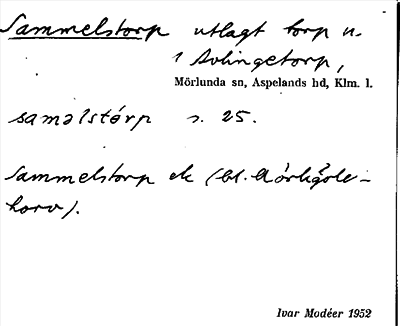 Sammelstorp utlagt torp u.
i Avlingetorp,
Mörlunda sn, Aspelands hd, Klm. l.
samǝlstórp s. 25.
Sammelstorp ek (bl.
horv).
Ivar Modéer 1952